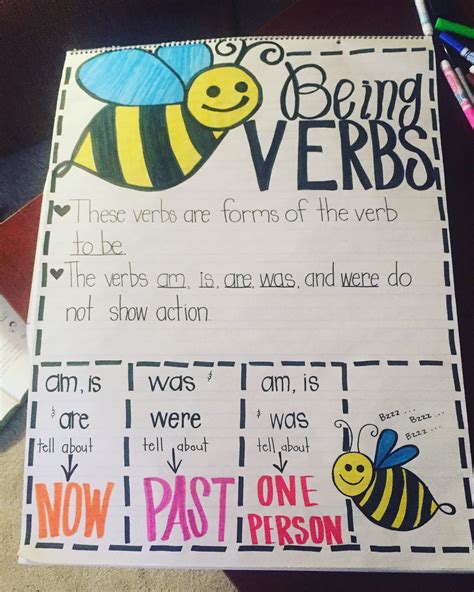 Being
VERBS
These verbs are forms of the verb
to be.
The verbs am, is, are, was, and were do
not show action.
am, is
& are
tell about
NOW
was &
were
tell about
PAST
am, is
& was
tell about
ONE
PERSON!
Bzzz...
Bzzz...
Bzzz...